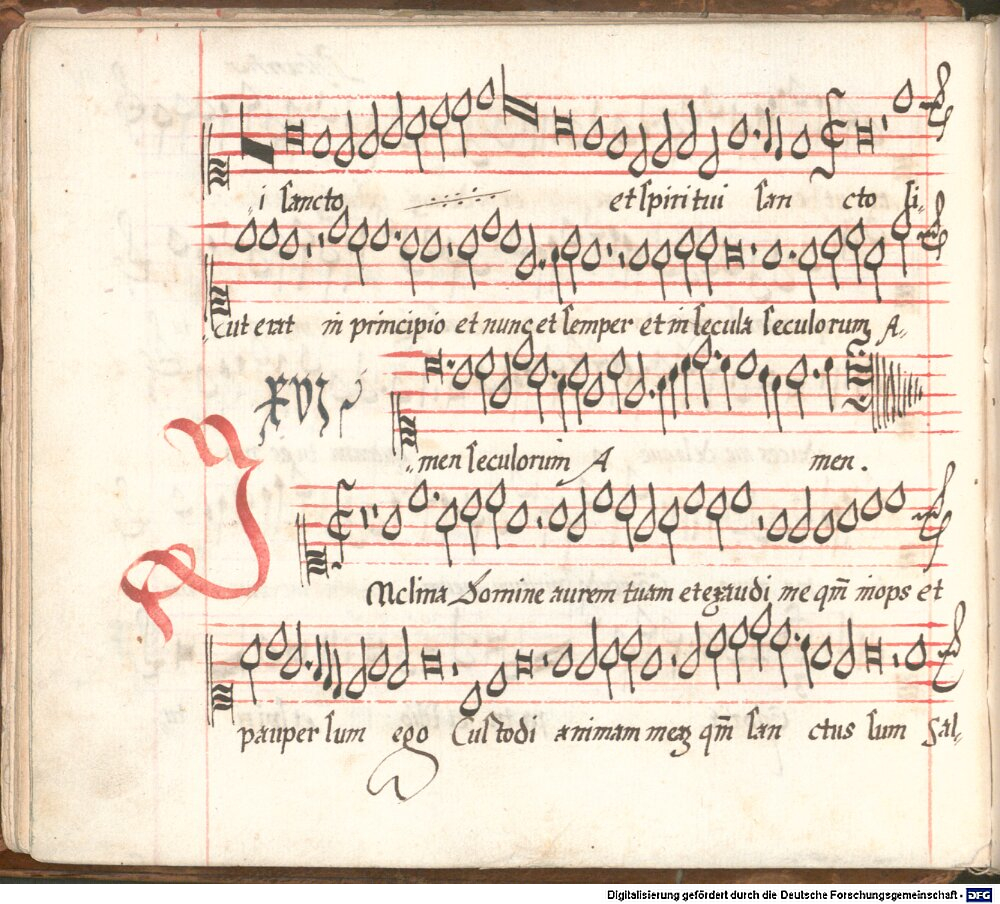 i sancto et spiritui san cto si-
cut erat in principio et nunc et semper et in secula seculorum A-
XVI
men seculorum A men.
INclina Domine aurem tuam et exaudi me qm̄ inops et
pauper sum ego Custodi animam meaʒ qm̄ san ctus sum Sal-
Digitalisierung gefördert durch die Deutsche Forschungsgemeinschaft - DFG